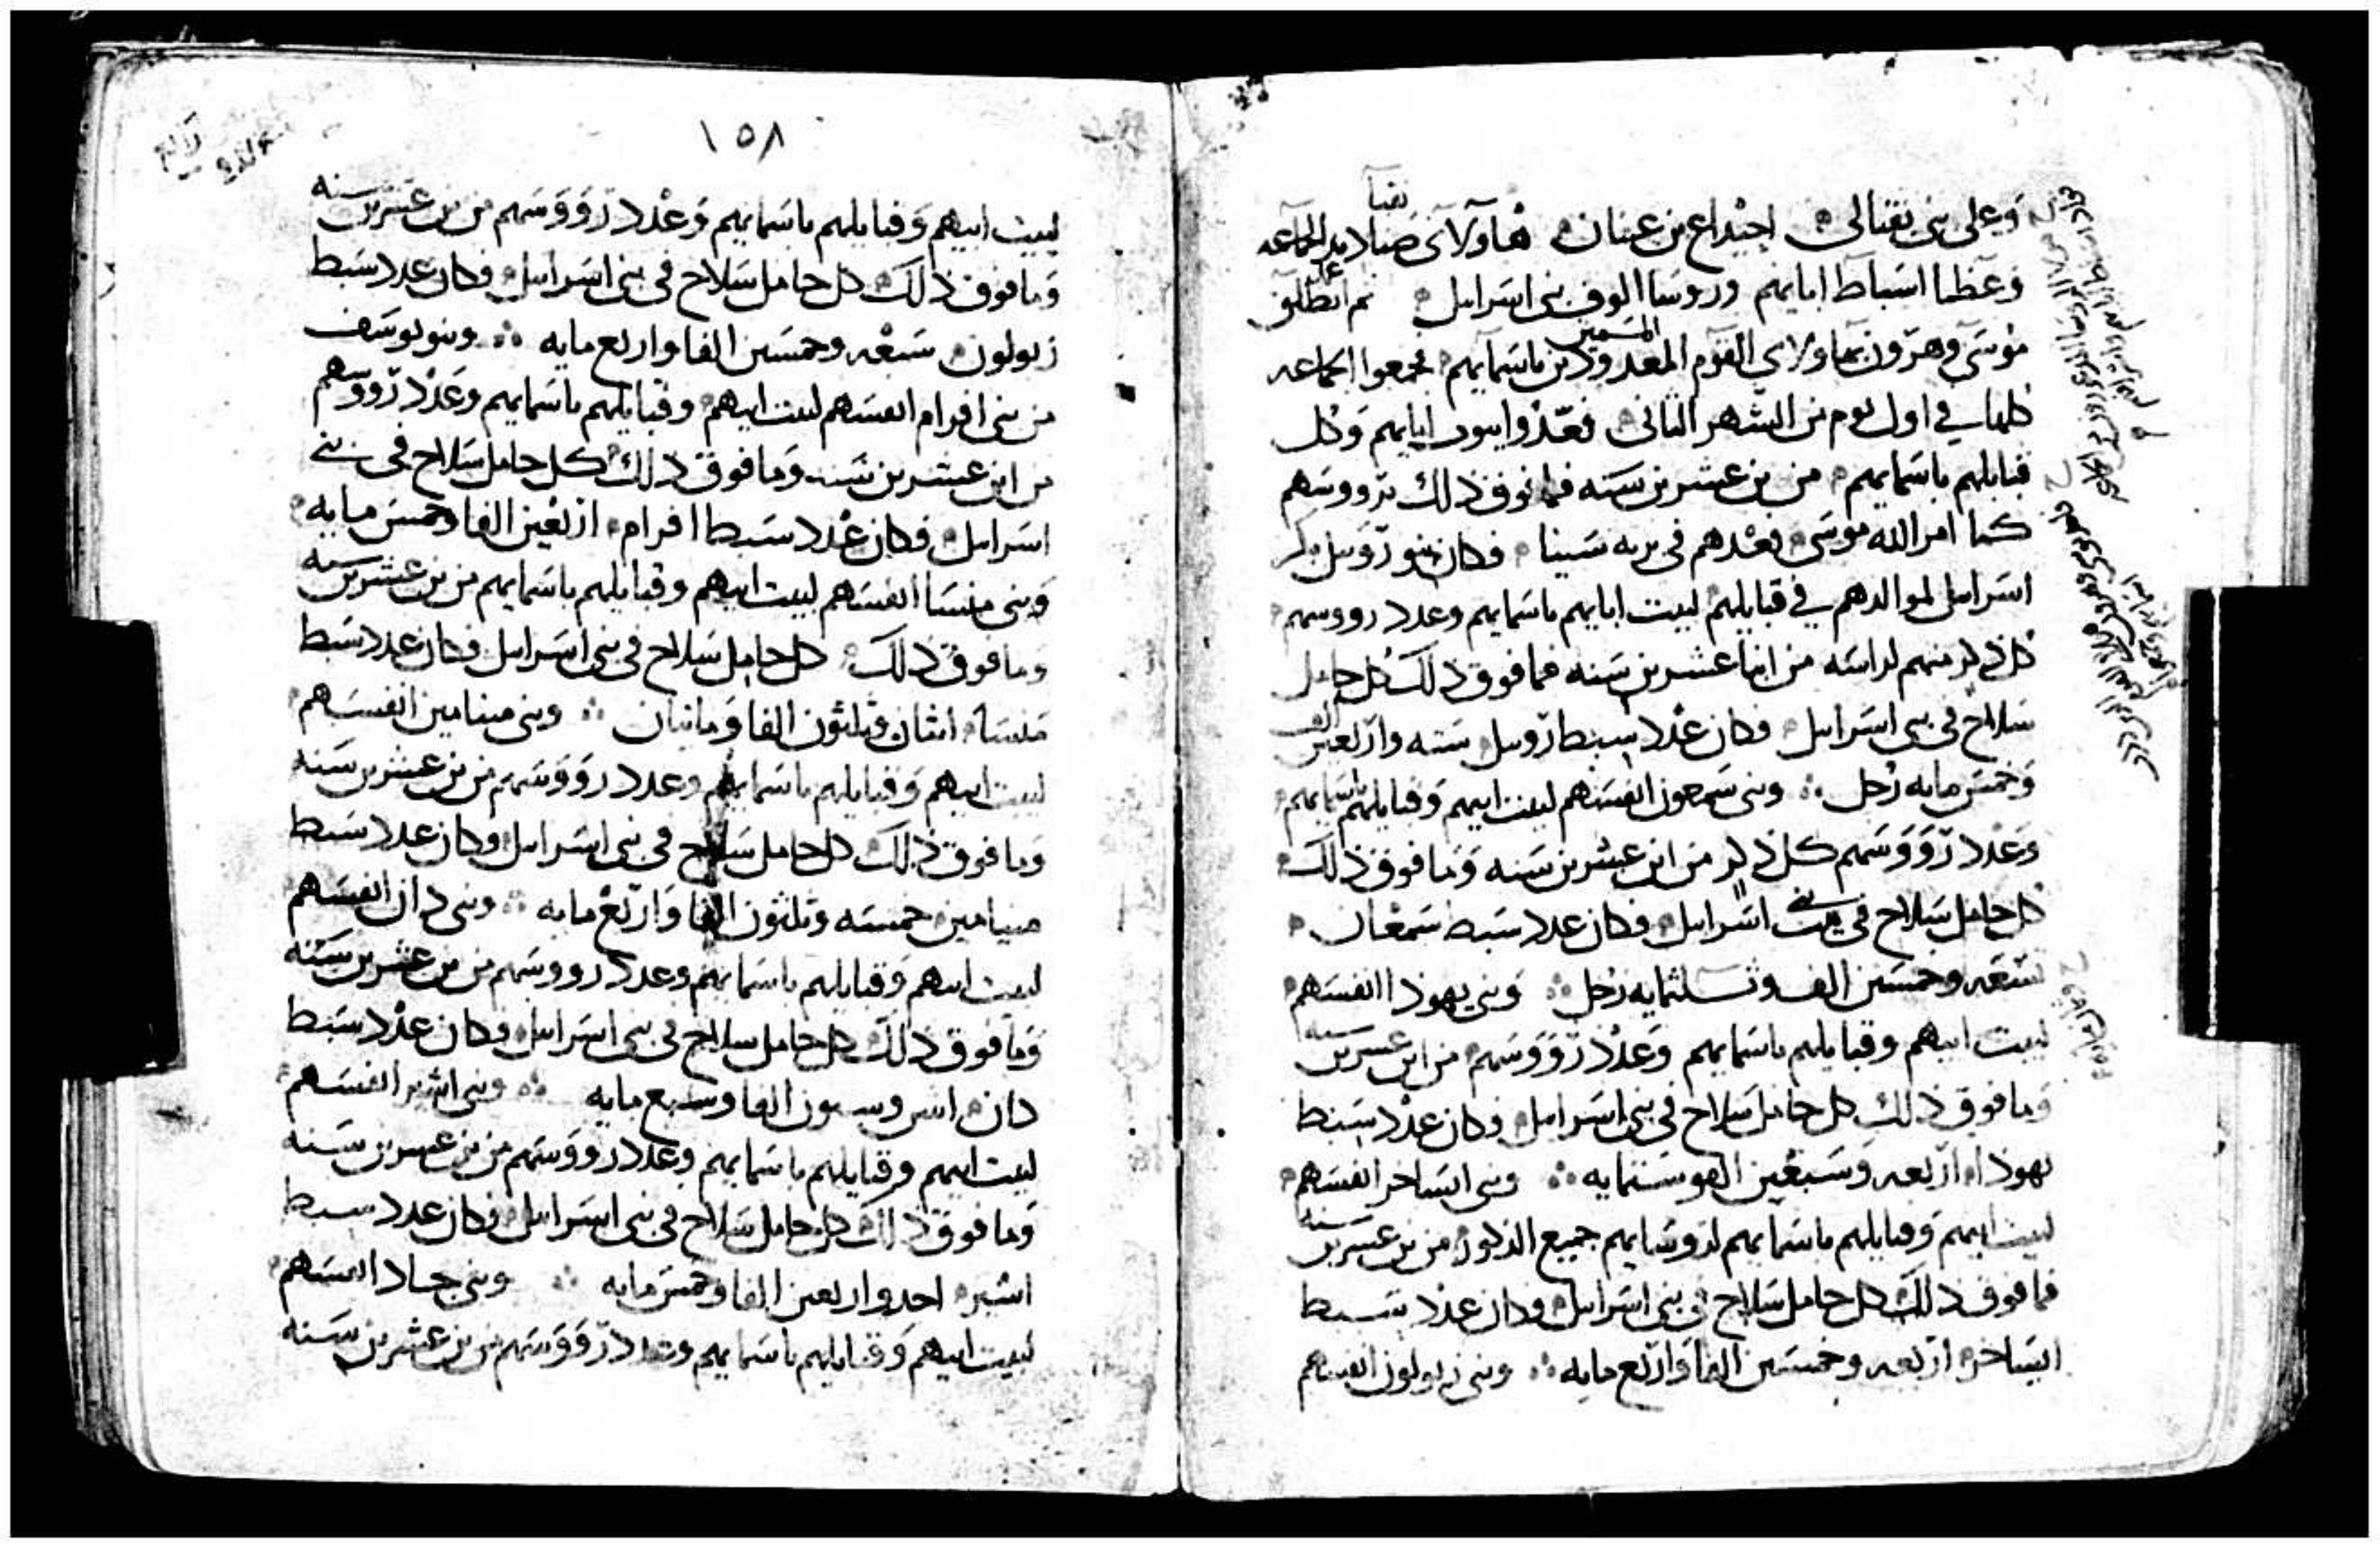 وعلى بني نفتالى احيداع بن عينان هاولاى صناديد الجماعه
نقبا
وعظما اسباط ابايهم وروسا الوف بني اسرايل ثم انطلق
موسى وهرون بهاولاي القوم المعدودين باسمايهم فجمعوا الجماعه
المسمين
كلها في اول يوم من الشهر الثانى فعدوا بيوت ابايهم وكل
قبايلهم باسمايهم من بن عشرين سنه فما فوق ذلك برووسهم
كما امر الله موسى فعدهم فى بريه سينا فكان بنو روبيل بكر
اسرايل لموالدهم في قبايلهم لبيت ابايهم باسمايهم وعدد رووسهم
كل ذكر منهم لراسه من ابنا عشرين سنه فما فوق ذلك كل حامل
سلاح فى بني اسرايل فكان عدد سبط روبيل سته واربعين الف
وخمس مايه رجل وبنى سمعون انفسهم لبيت ابيهم وقبايلهم باسمايهم
وعدد رووسهم كل ذكر من ابن عشرين سنه وما فوق ذلك
كل حامل سلاح فى بني اسرايل فكان عدد سبط سمعان
تسعه وخمسين الف وثلثمايه رجل وبنى يهوذا انفسهم
لبيت ابيهم وقبايلهم باسمايهم وعدد رووسهم من ابن عشرين سنه
وما فوق ذلك كل حامل سلاح فى بني اسرايل وكان عدد سبط
يهوذا اربعه وسبعين الف وستمايه وبنى ايساخر انفسهم
لبيت ابيهم وقبايلهم باسمايهم لروسايهم جميع الذكور من بن عشرين سنه
فما فوق ذلك كل حامل سلاح فى بني اسرايل وكان عدد سبط
ايساخر اربعه وخمسين الفا واربع مايه وبنى زبولون انفسهم
١٥٨
لبيت ابيهم وقبايلهم باسمايهم وعدد رووسهم من بن عشرين سنه
وما فوق ذلك كل حامل سلاح فى بني اسرايل فكان عدد سبط
زبولون سبعه وخمسين الفا واربع مايه وبنو يوسف
من بني افرام انفسهم لبيت ابيهم وقبايلهم باسمايهم وعدد رووسهم
من ابن عشرين سنه وما فوق ذلك كل حامل سلاح فى بني
اسرايل فكان عدد سبط افرام اربعين الفا وخمس مايه
وبنى منسا انفسهم لبيت ابيهم وقبايلهم باسمايهم من بن عشرين سنه
وما فوق ذلك كل حامل سلاح فى بني اسرايل فكان عدد سبط
منسا اثنان وثلثون الفا ومايتان وبنى بنيامين انفسهم
لبيت ابيهم وقبايلهم باسمايهم وعدد رووسهم من بن عشرين سنه
وما فوق ذلك كل حامل سلاح فى بني اسرايل وكان عدد سبط
بنيامين خمسه وثلثون الفا واربع مايه وبنى دان انفسهم
لبيت ابيهم وقبايلهم باسمايهم وعدد رووسهم من بن عشرين سنه
وما فوق ذلك كل حامل سلاح فى بني اسرايل وكان عدد سبط
دان اثنين وستون الفا وسبع مايه وبنى اشير انفسهم
لبيت ابيهم وقبايلهم باسمايهم وعدد رووسهم من بن عشرين سنه
وما فوق ذلك كل حامل سلاح فى بني اسرايل فكان عدد سبط
اشير احد واربعين الفا وخمس مايه وبنى جاد انفسهم
لبيت ابيهم وقبايلهم باسمايهم وعدد رووسهم من بن عشرين سنه